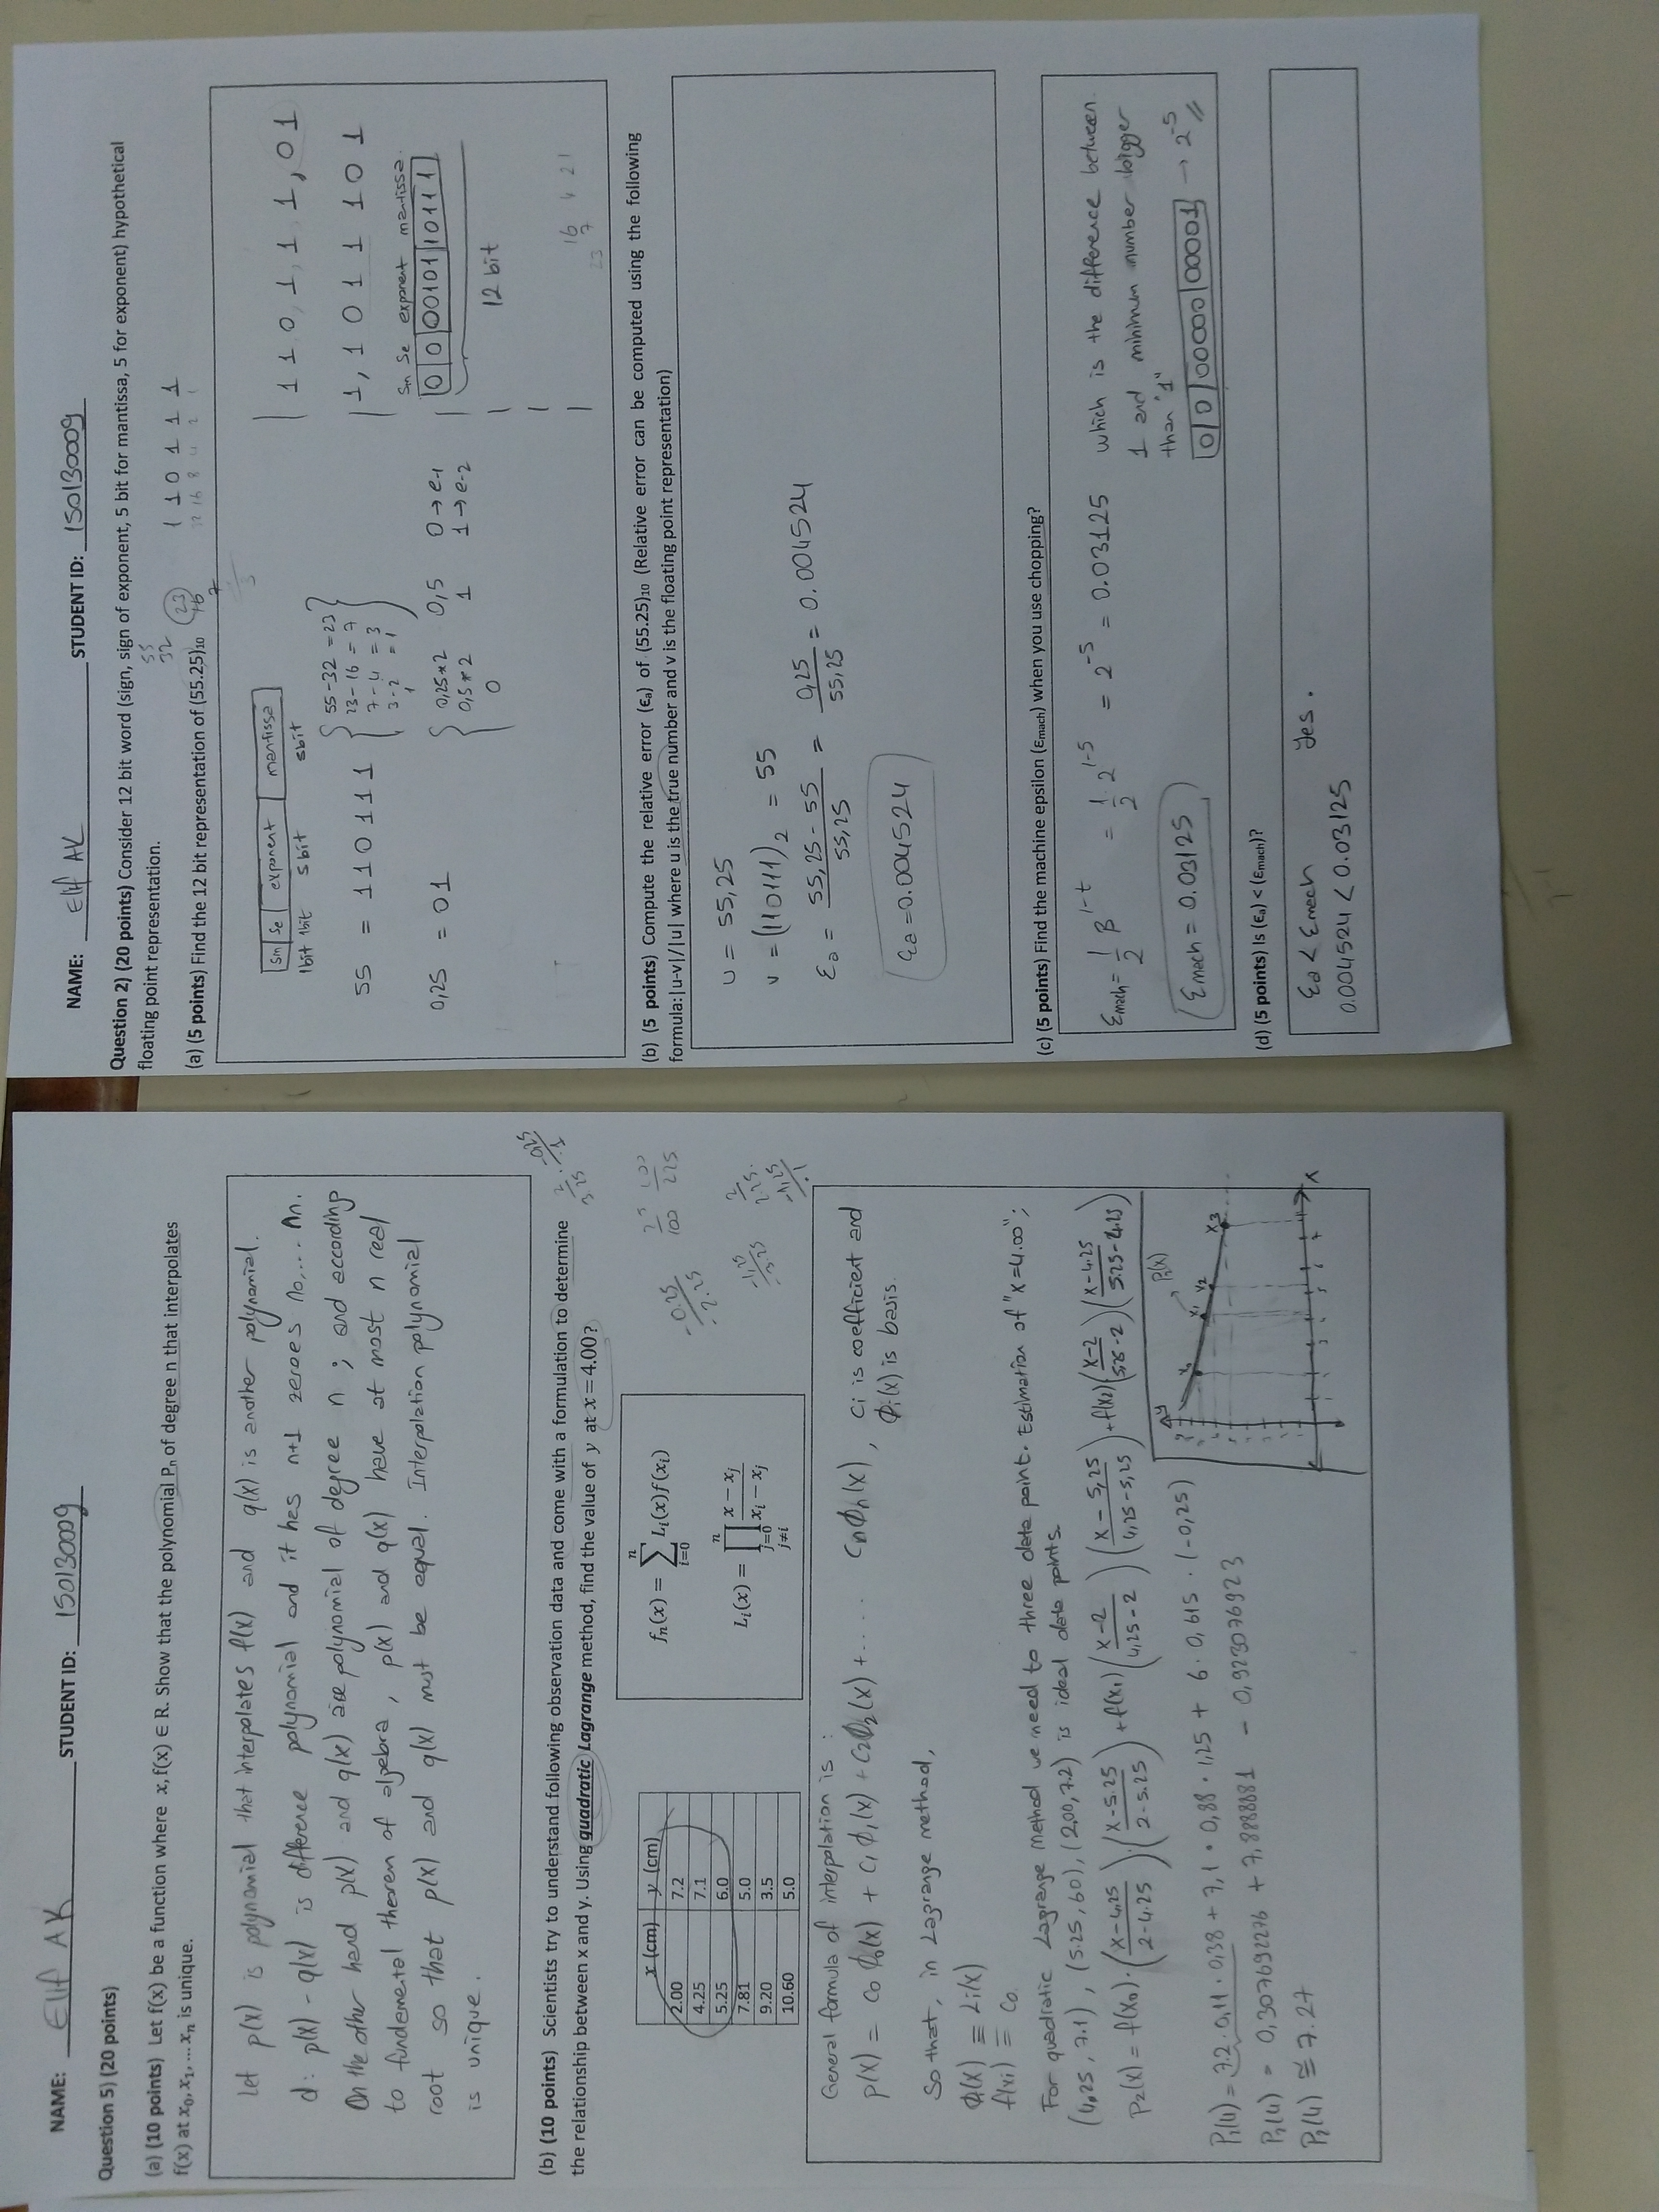 NAME: Elif AK STUDENT ID: 150130009
Question 5) (20 points)
(a) (10 points) Let f(x) be a function where x, f(x) ∈ R. Show that the polynomial Pₙ of degree n that interpolates
f(x) at x₀, x₁, ... xₙ is unique.
Let p(x) is polynomial that interpolates f(x) and q(x) is another polynomial.
d: p(x) - q(x) is difference polynomial and it has n+1 zeroes n₀,... nₙ.
On the other hand p(x) and q(x) are polynomial of degree n ; and according
to fundemental theorem of algebra, p(x) and q(x) have at most n real
root so that p(x) and q(x) must be equal. Interpolation polynomial
is unique.
(b) (10 points) Scientists try to understand following observation data and come with a formulation to determine
the relationship between x and y. Using quadratic Lagrange method, find the value of y at x=4.00?
2/3.25 . -0,25/1
x (cm) y (cm)
2.00 7.2
4.25 7.1
5.25 6.0
7.81 5.0
9.20 3.5
10.60 5.0
fₙ(x) = ∑ᵢ₌₀ⁿ Lᵢ(x)f(xᵢ)
Lᵢ(x) = ∏ⱼ₌₀,ⱼ≠ᵢⁿ (x − xⱼ)/(xᵢ − xⱼ)
-0.25/-2.25
25/100 100/225
-1,25/-3.25
2/2.25 . -1,25/-1
General formula of interpolation is :
p(x) = c₀ ϕ₀(x) + c₁ ϕ₁(x) + c₂ϕ₂(x) +.... cₙϕₙ(x), ci is coefficient and
ϕᵢ(x) is basis.
So that, in Lagrange method,
ϕᵢ(x) ≡ Li(x)
f(xi) ≡ c₀
For quadratic Lagrange Method we need to three data point. Estimation of "x=4.00";
(4,25 , 7.1) , (5.25, 60), (2,00, 7.2) is ideal data points.
P₂(x) = f(x₀).((x-4,25)/(2-4.25)).((x-5.25)/(2-5.25)) + f(x₁)((x-2)/(4,25-2))((x-5,25)/(4,25-5,25)) + f(x₂)((x-2)/(5,25-2))((x-4.25)/(5.25-4.25))
P₂(4) = 7.2 . 0,11 . 0,38 + 7,1 . 0,88 . 1,25 + 6 . 0,615 . (-0,25)
P₂(4) = 0,307692276 + 7,8888881 - 0,923076923
P₂(4) ≅ 7.27
y P₂(x)
x₀ x₁ x₂ x₃
x
NAME: Elif AK STUDENT ID: 150130009
Question 2) (20 points) Consider 12 bit word (sign, sign of exponent, 5 bit for mantissa, 5 for exponent) hypothetical
floating point representation.
55
32
23
16
7
3
1 1 0 1 1 1
32 16 8 4 2 1
(a) (5 points) Find the 12 bit representation of (55.25)₁₀
Sm Se exponent mantissa
1bit 1bit 5bit 5bit
55 = 110111
55-32 = 23
23-16 = 7
7-4 = 3
3-2 = 1
1
0,25 = 01
0,25*2 0,5 0→e-1
0,5*2 1 1→e-2
0
110111,01
1,1011101
Sm Se exponent mantissa.
0 0 00101 10111
12 bit
16 4 2 1
23 7
(b) (5 points) Compute the relative error (ϵₐ) of (55.25)₁₀ (Relative error can be computed using the following
formula:|u-v|/|u| where u is the true number and v is the floating point representation)
u = 55,25
v = (110111)₂ = 55
Ea = (55,25 - 55)/55,25 = 0,25/55,25 = 0.004524
Ea = 0.004524
(c) (5 points) Find the machine epsilon (ϵmach) when you use chopping?
Emach = 1/2 β^(1-t) = 1/2 . 2^(1-5) = 2^-5 = 0.03125 which is the difference between
1 and minimum number bigger
than "1"
Emach = 0.03125
0 0 00000 00001 → 2^-5
(d) (5 points) Is (ϵₐ) < (ϵmach)?
Ea < Emach Yes.
0.004524 < 0.03125